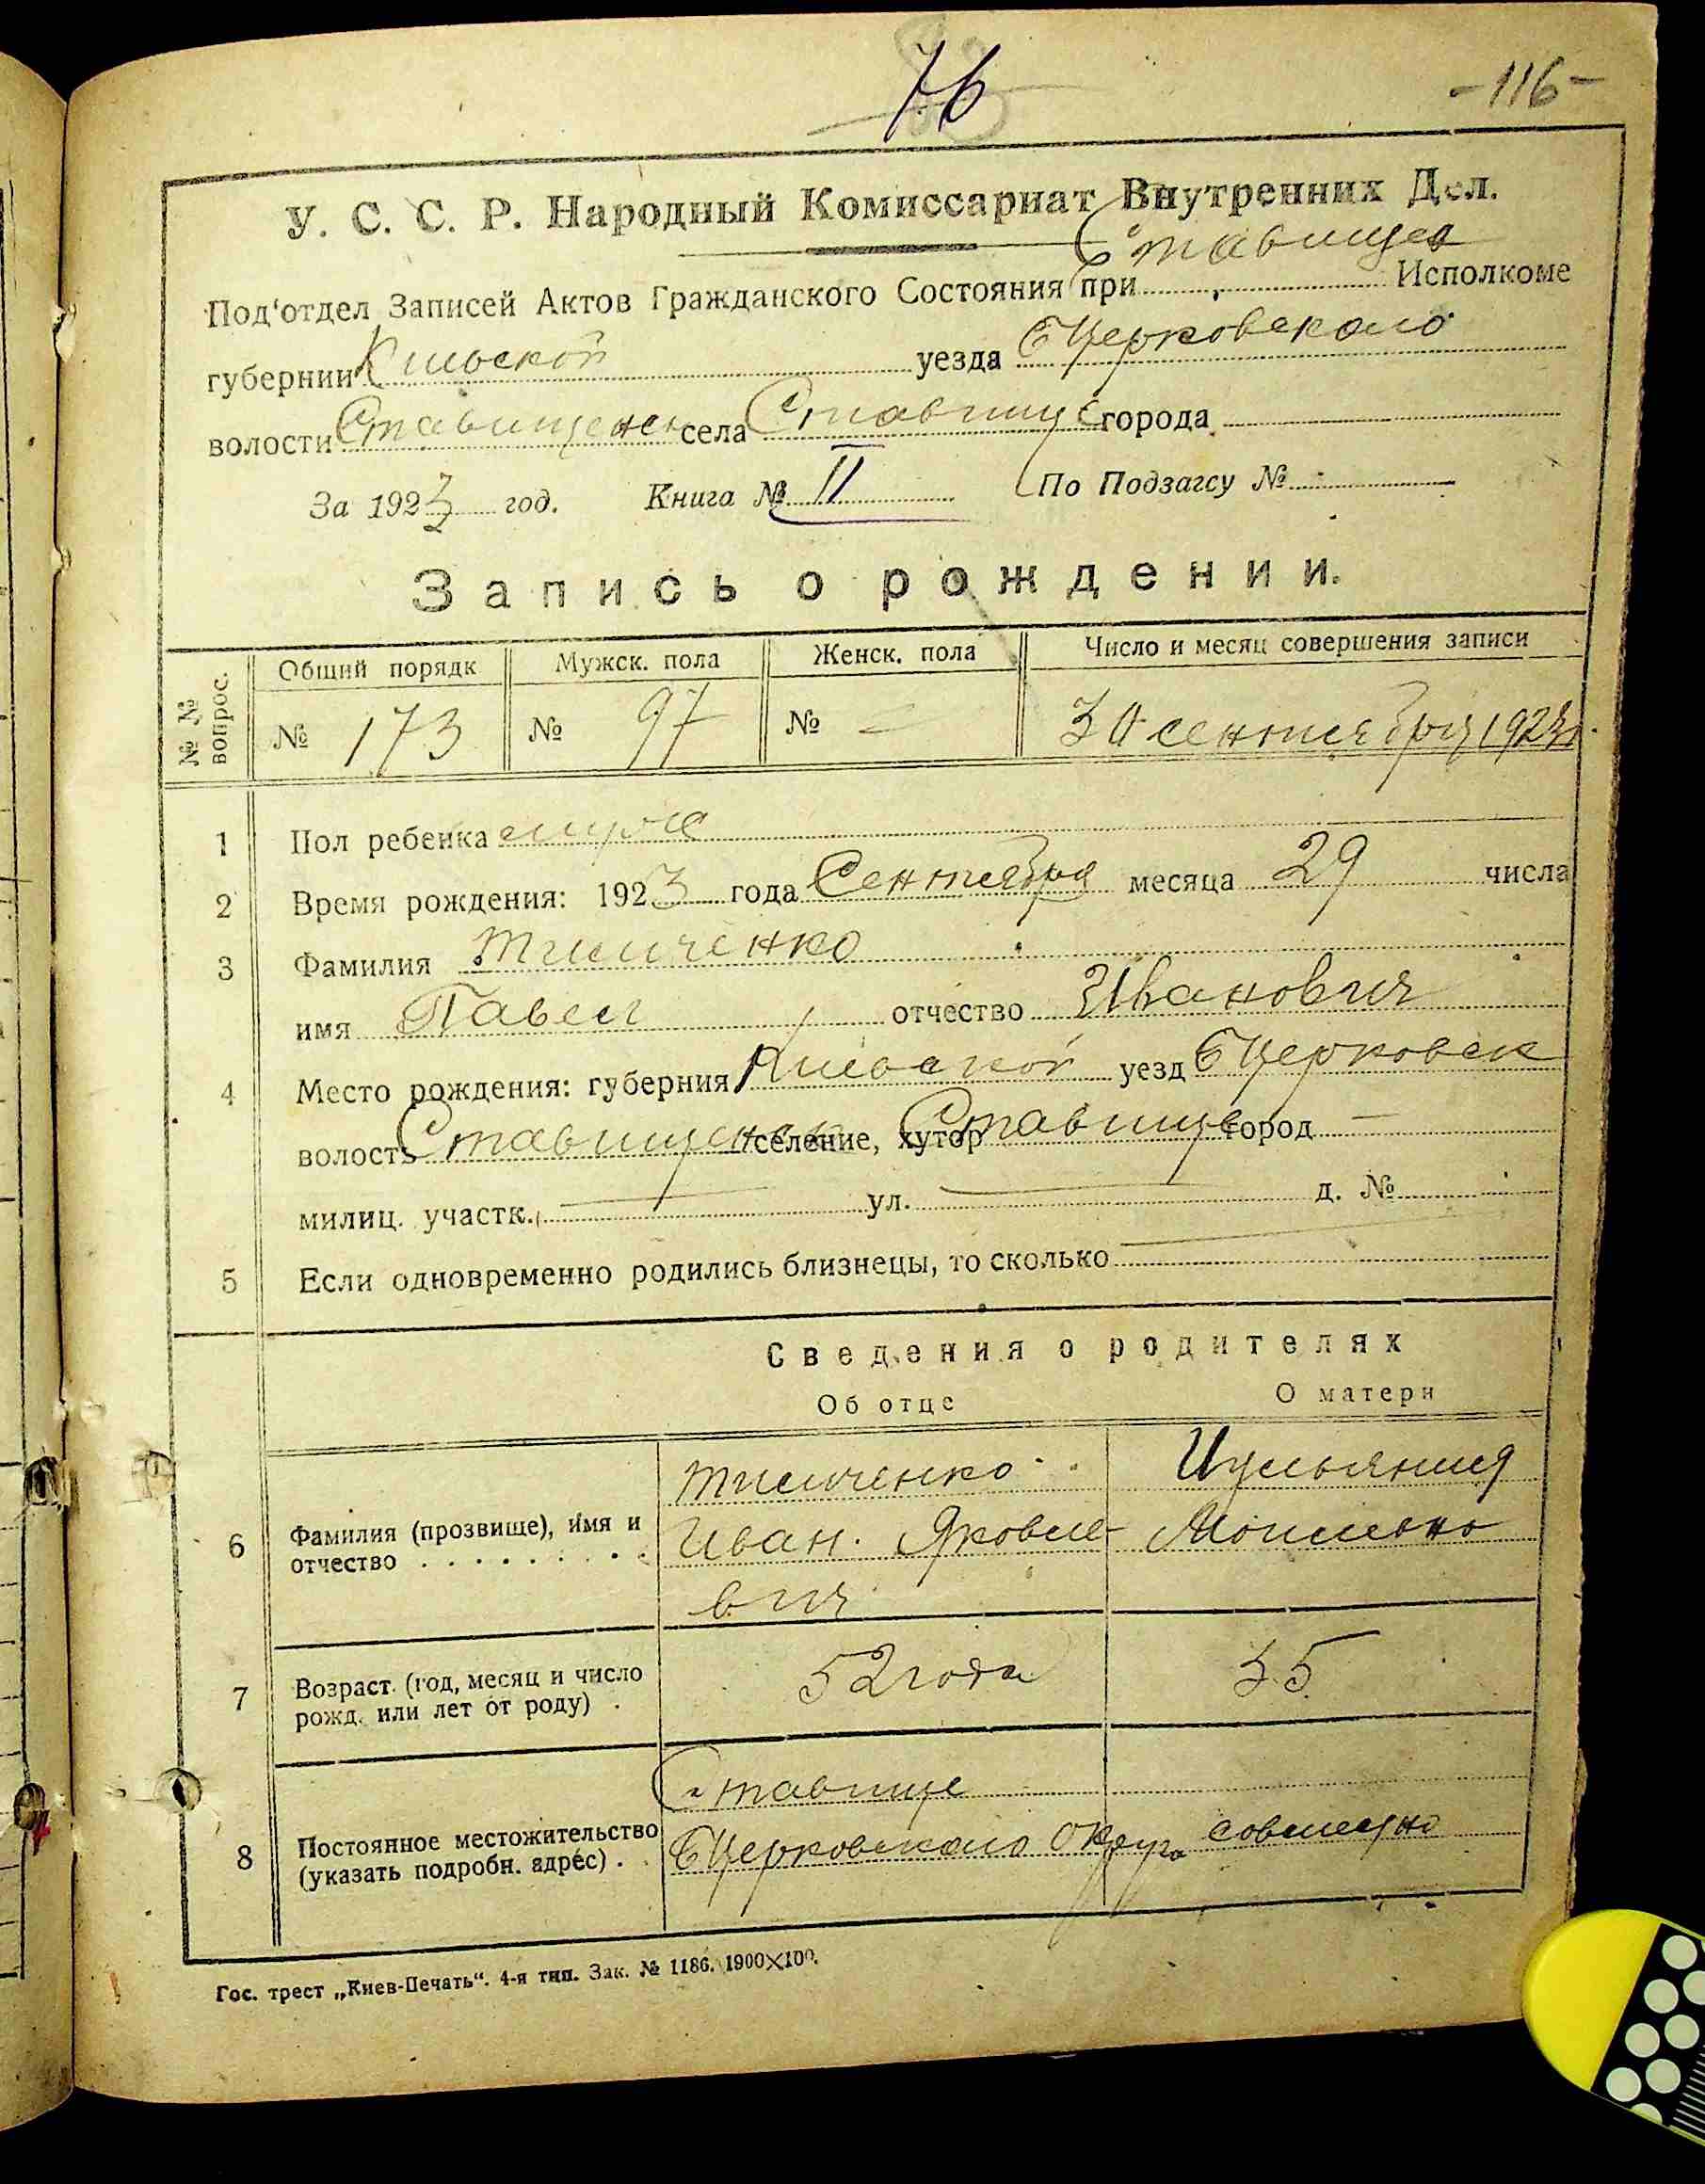 76
-116-
У. С. С. Р. Народный Комиссариат Внутренних Дел.
Под'отдел Записей Актов Гражданского Состояния при Ставищен Исполкоме
губернии Киевской уезда БЦерковского
волости Ставищенск села Ставище города
За 1923 год. Книга № II По Подзагсу №
Запись о рождении.
№ № вопрос.
Общий порядк Мужск. пола Женск. пола Число и месяц совершения записи
№ 173 № 97 № - 30 сентября 1923г.
1 Пол ребенка муж
2 Время рождения: 1923 года Сентября месяца 29 числа
3 Фамилия Тимченко
имя Павел отчество Иванович
4 Место рождения: губерния Киевской уезд БЦерковск
волость Ставищенск селение, хутор Ставище город —
милиц. участк. — ул. — д. №
5 Если одновременно родились близнецы, то сколько —
Сведения о родителях
Об отце О матери
Тимченко
6 Фамилия (прозвище), имя и отчество Иван. Яковле-
вич
7 Возраст (год, месяц и число рожд. или лет от роду) 52 года 35
Ставище
8 Постоянное местожительство (указать подробн. адрес) БЦерковского Округа совместно
Гос. трест „Киев-Печать“. 4-я тип. Зак. № 1186. 1900×100.